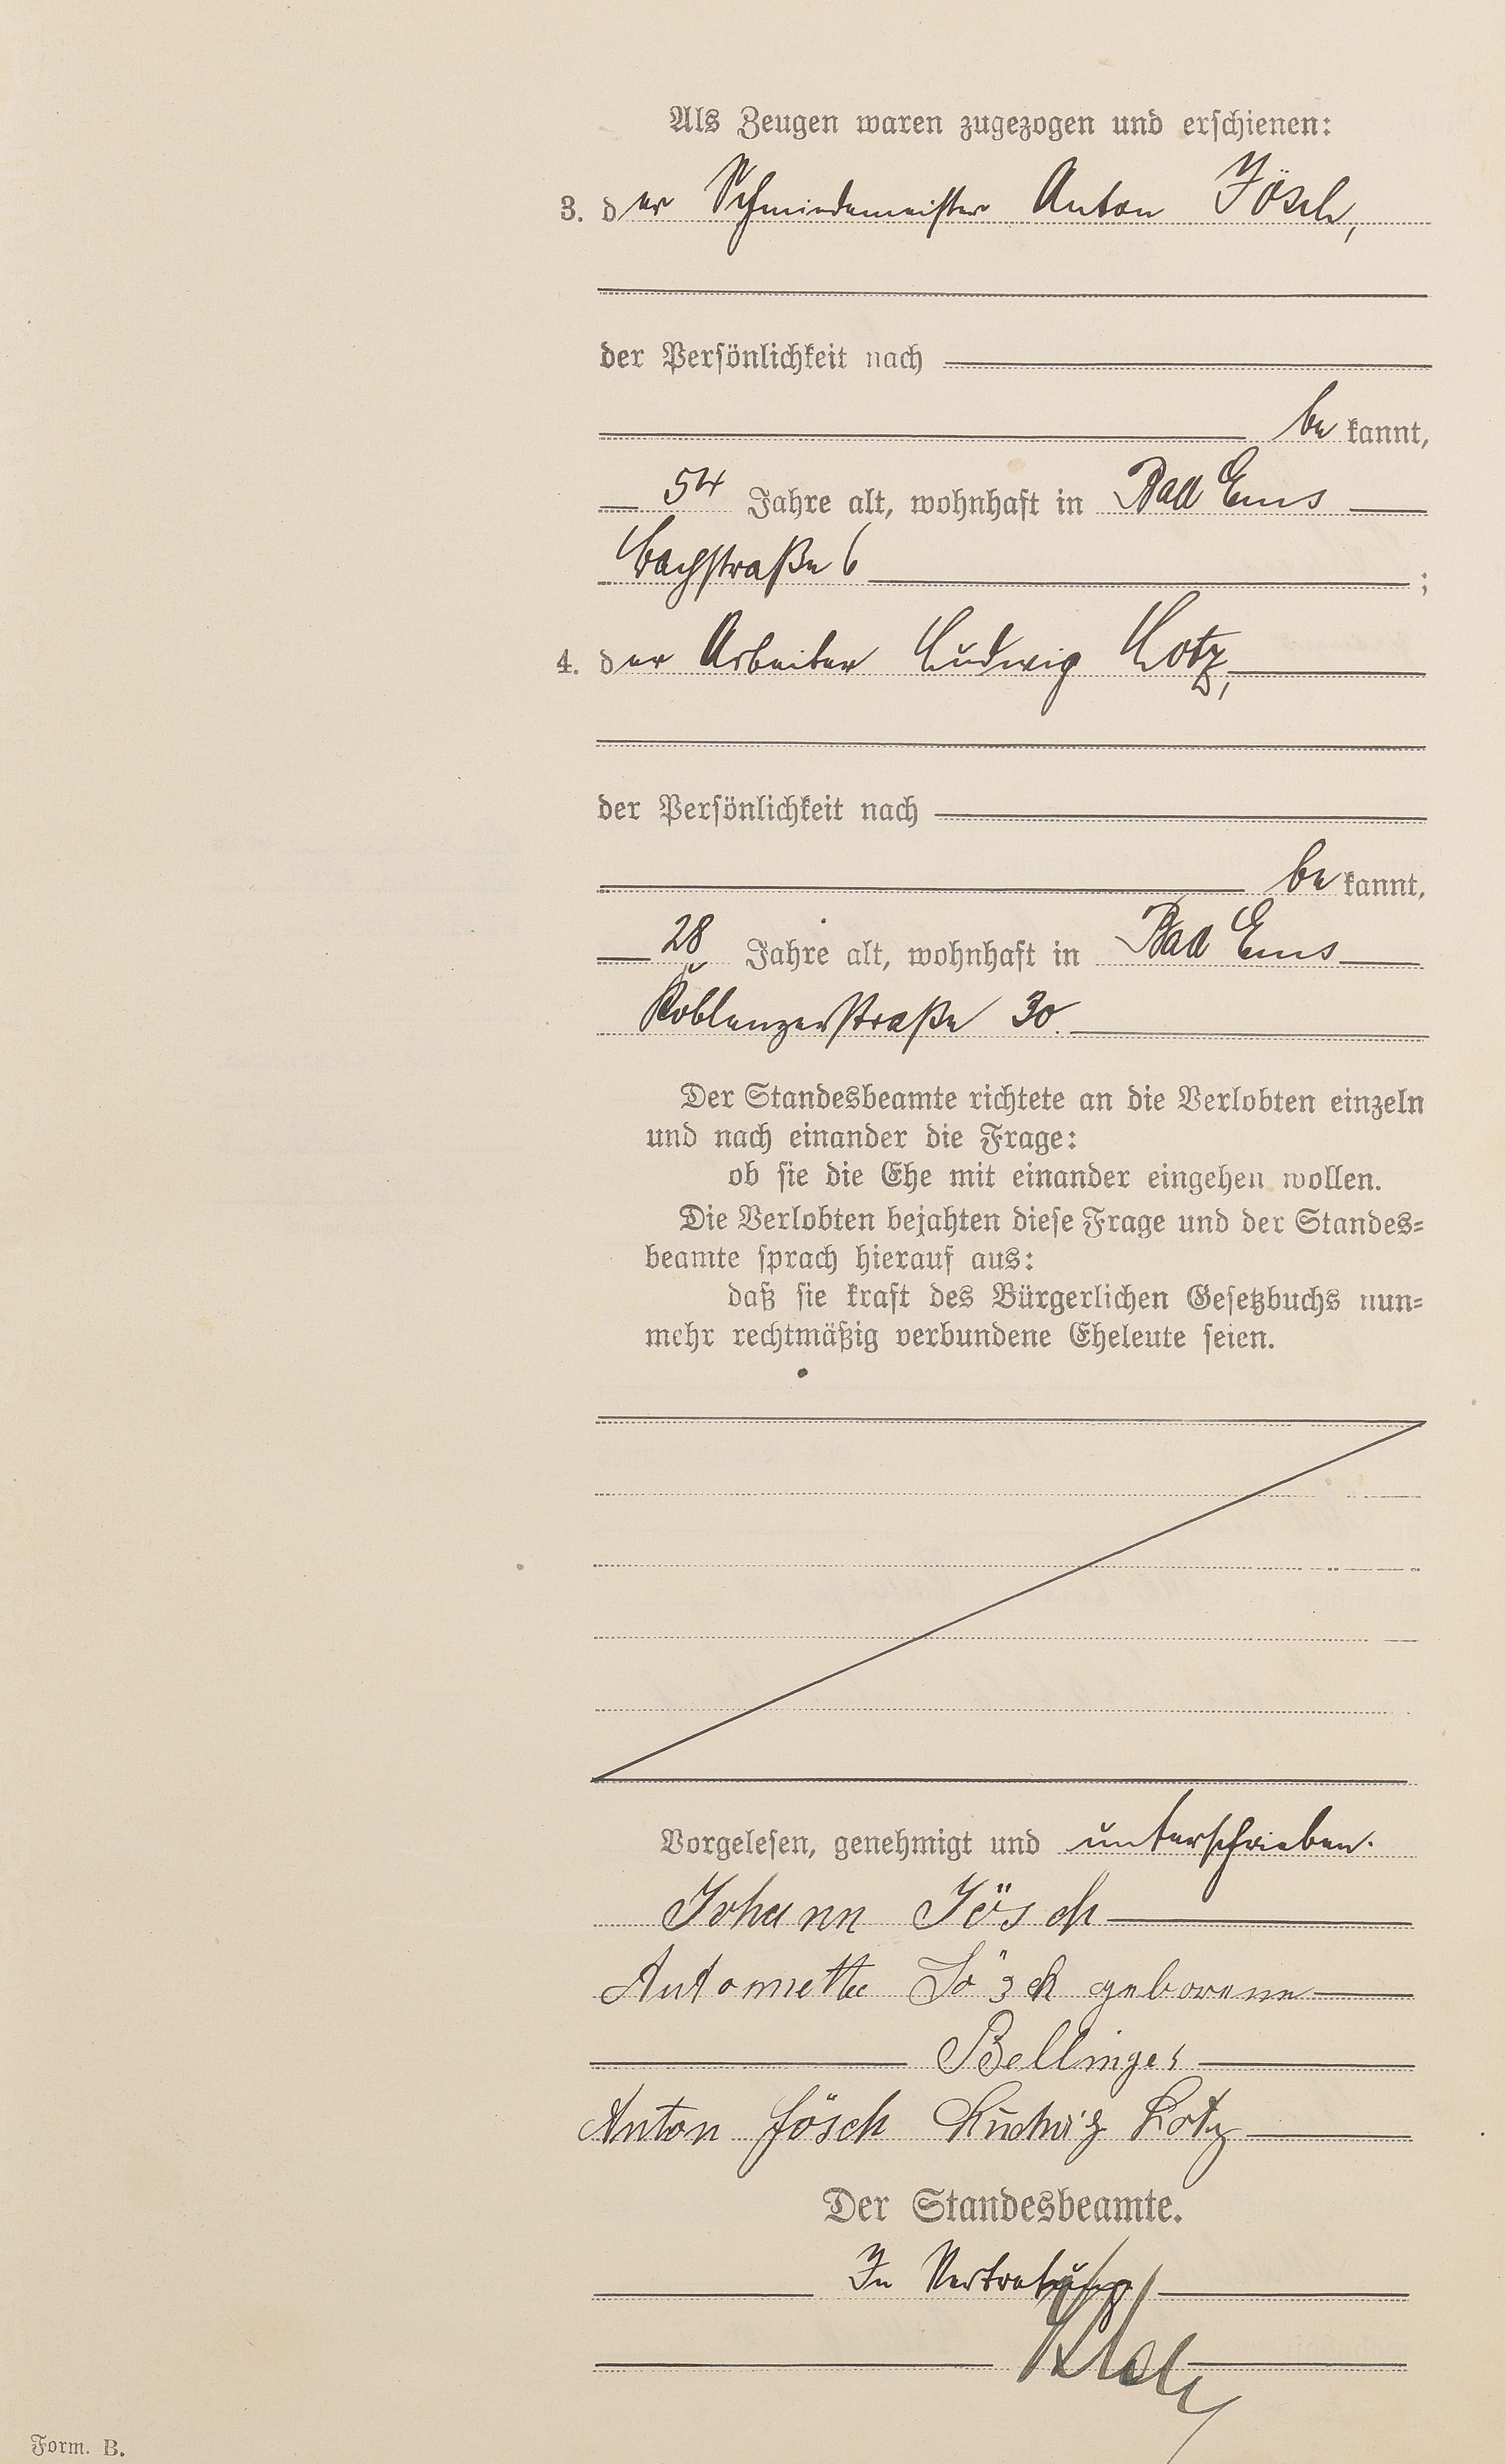 Als Zeugen waren zugezogen und erschienen:
3. der Schmiedemeister Anton Jösch,
der Persönlichkeit nach
be kannt,
54 Jahre alt, wohnhaft in Bad Ems
Bachstraße 6 ;
4. der Arbeiter Ludwig Lotz,
der Persönlichkeit nach
be kannt,
28 Jahre alt, wohnhaft in Bad Ems
Koblenzerstraße 30.
Der Standesbeamte richtete an die Verlobten einzeln
und nach einander die Frage:
ob sie die Ehe mit einander eingehen wollen.
Die Verlobten bejahten diese Frage und der Standes-
beamte sprach hierauf aus:
daß sie kraft des Bürgerlichen Gesetzbuchs nun-
mehr rechtmäßig verbundene Eheleute seien.
Vorgelesen, genehmigt und unterschrieben.
Johann Jösch
Antonietta Jösch geborene
Bellinger
Anton Jösch Ludwig Lotz
Der Standesbeamte.
In Vertretung
Form. B.